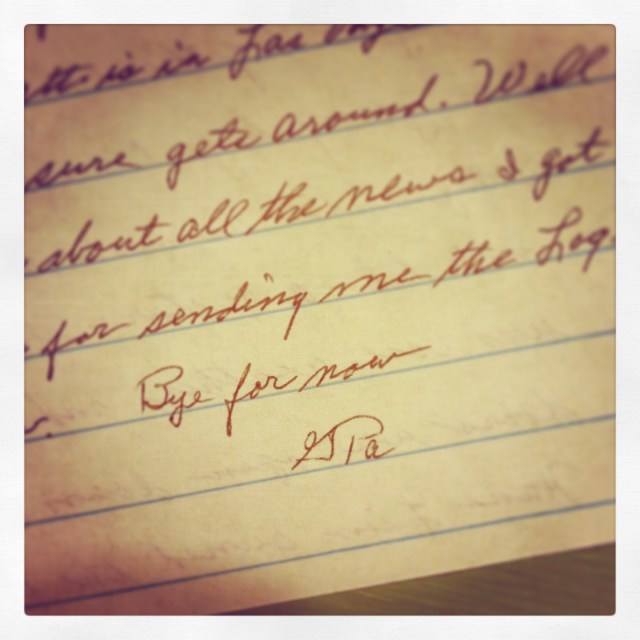 is in Las
sure gets around. Well
about all the news I got
for sending me the Log.
Bye for now
GPa